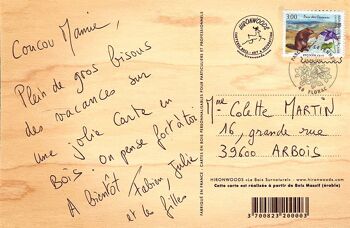 Coucou Mamie,
Plein de gros bisous
des vacances sur
une jolie carte en
BOIS. on pense fort à toi
A bientôt Fabien, Julie
et les filles
CARTES EN BOIS PERSONNALISABLES POUR PARTICULIERS ET PROFESSIONNELS
HIRONWOOD'S
3,00
48 FLORAC
Mme Colette MARTIN
16, grande rue
39600 ARBOIS
HIRONWOOD'S «Le Bois Surnaturel» - www.hironwoods.com
Cette carte est réalisée à partir de Bois Massif (érable)
3 700823 200003